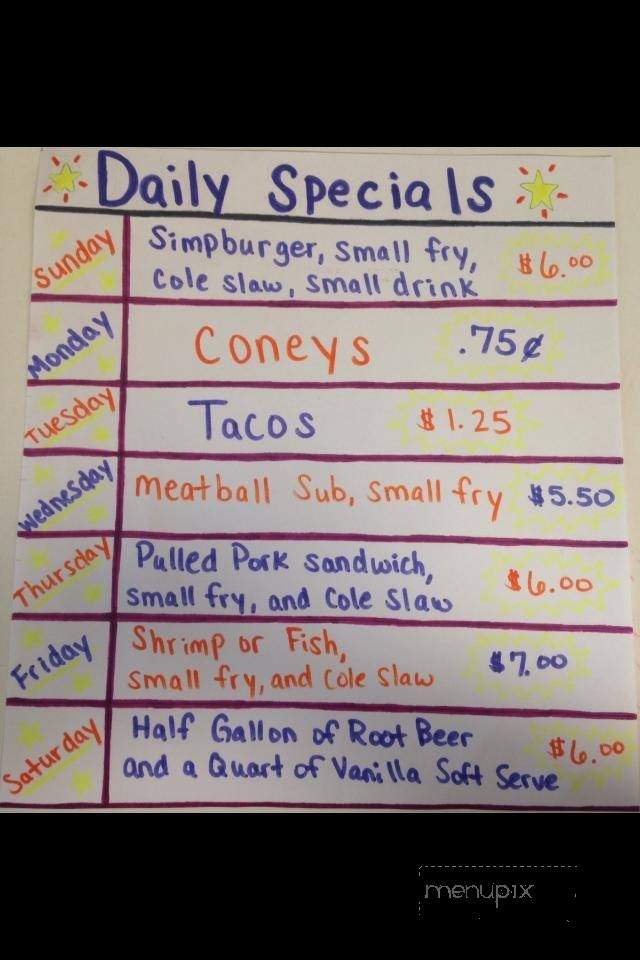 Daily Specials
Sunday
Simpburger, small fry,
Cole slaw, small drink
$6.00
Monday
Coneys
.75¢
Tuesday
Tacos
$1.25
Wednesday
Meatball Sub, small fry
$5.50
Thursday
Pulled Pork sandwich,
small fry, and Cole slaw
$6.00
Friday
Shrimp or Fish,
small fry, and Cole slaw
$7.00
Saturday
Half Gallon of Root Beer
and a Quart of Vanilla Soft Serve
$6.00
menupix